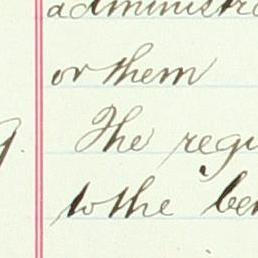 administra
or them
The regi
to the ben